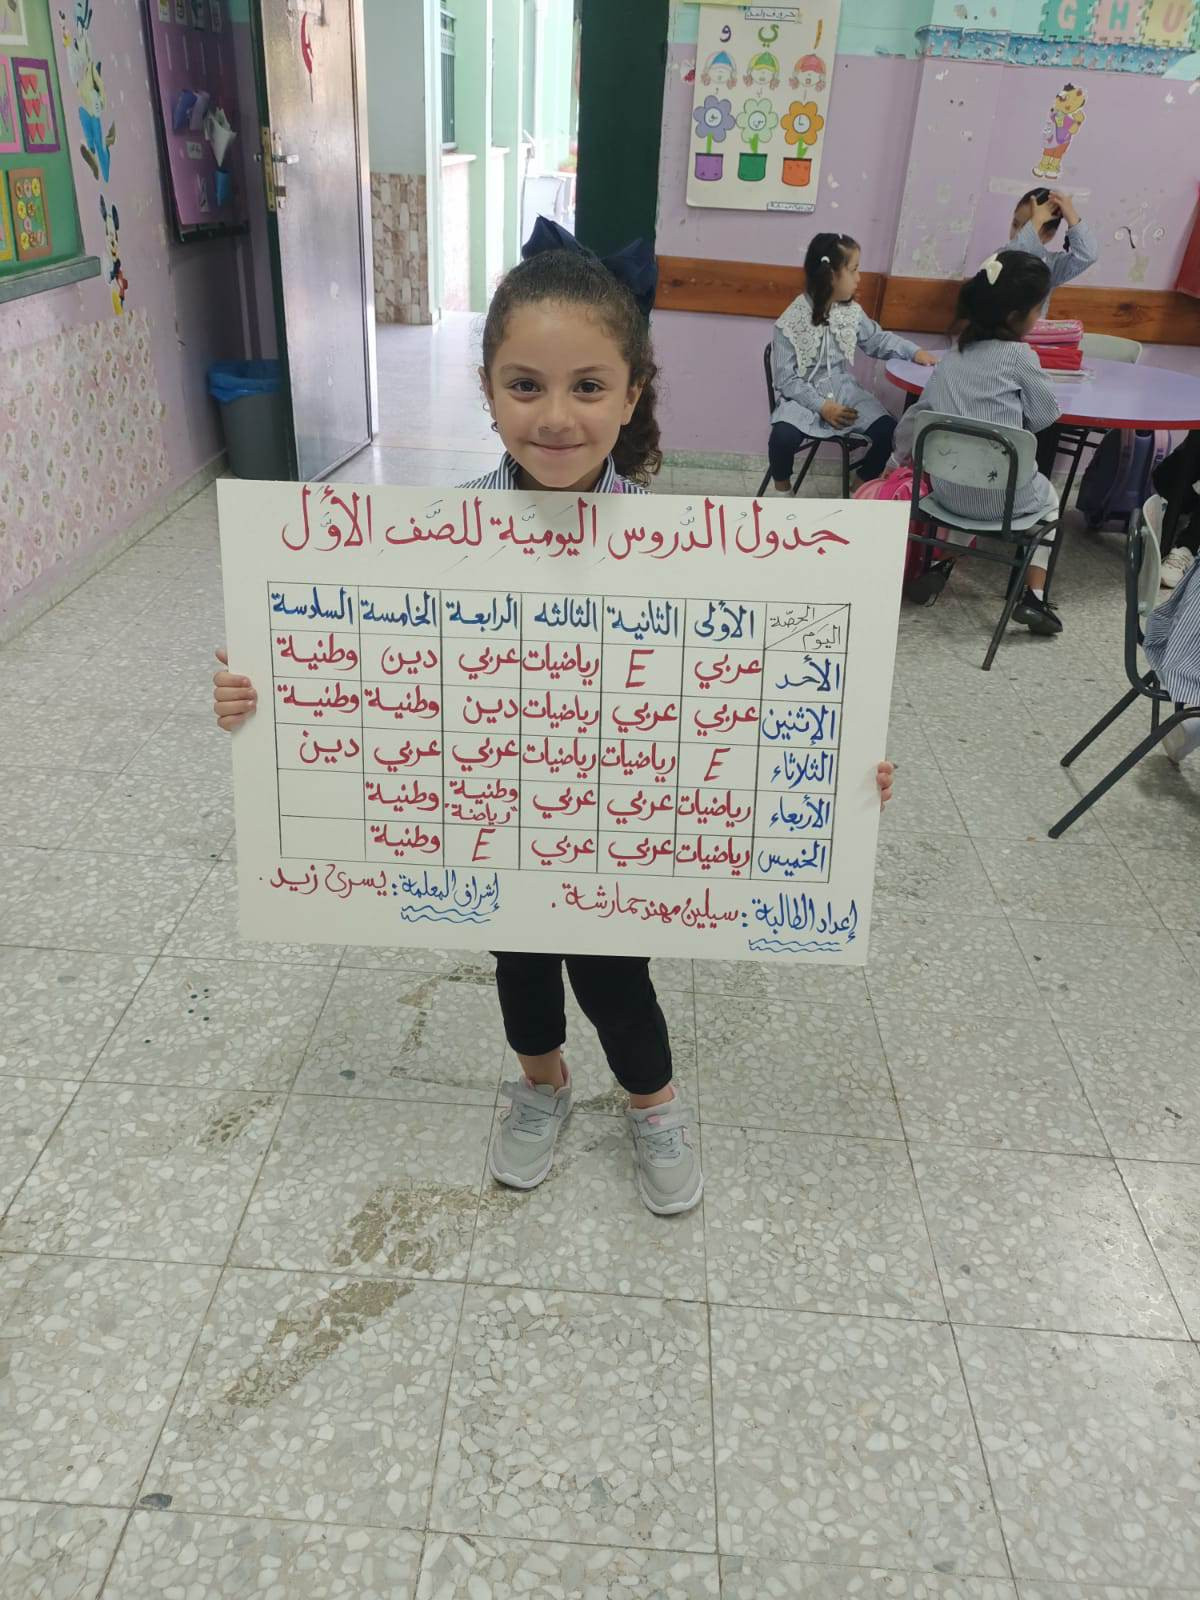 جَدْوَلُ الدُّرُوسِ اليَوْمِيَّةِ لِلصَّفِ الأَوَّل
الحصّة / اليوم الأولى الثانية الثالثه الرابعة الخامسة السادسة
الأحد عربي E رياضيات عربي دين وطنية
الإثنين عربي عربي رياضيات دين وطنية وطنية
الثلاثاء E رياضيات رياضيات عربي عربي دين
الأربعاء رياضيات عربي عربي وطنية "رياضة" وطنية
الخميس رياضيات عربي عربي E وطنية
إعداد الطالبة : سيلين مهند حمارشة . إشراف المعلمة : يسرى زيد .
ا ي و
G H U